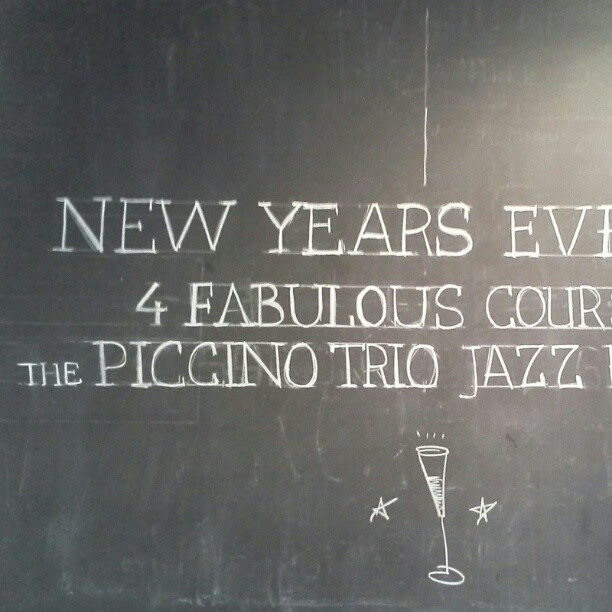 NEW YEARS EVE
4 FABULOUS COUR
THE PICCINO TRIO JAZZ